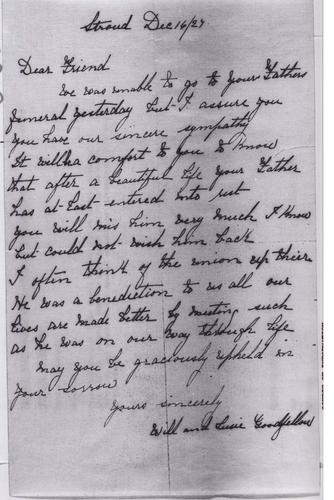 Stroud Dec 16/27
Dear Friend
We was unable to go to your Fathers
funeral yesterday but I assure you
you have our sincere sympathy
It will be a comfort to you to know
that after a beautiful life your Father
has at last entered into rest
you will mis him very much I know
but could not wish him back
I often think of the union up their
He was a benediction to us all our
lives are made better by meeting such
as he was on our way through life
may you be graciously upheld in
your sorrow
yours sincerely
Will and Susie Goodfellow